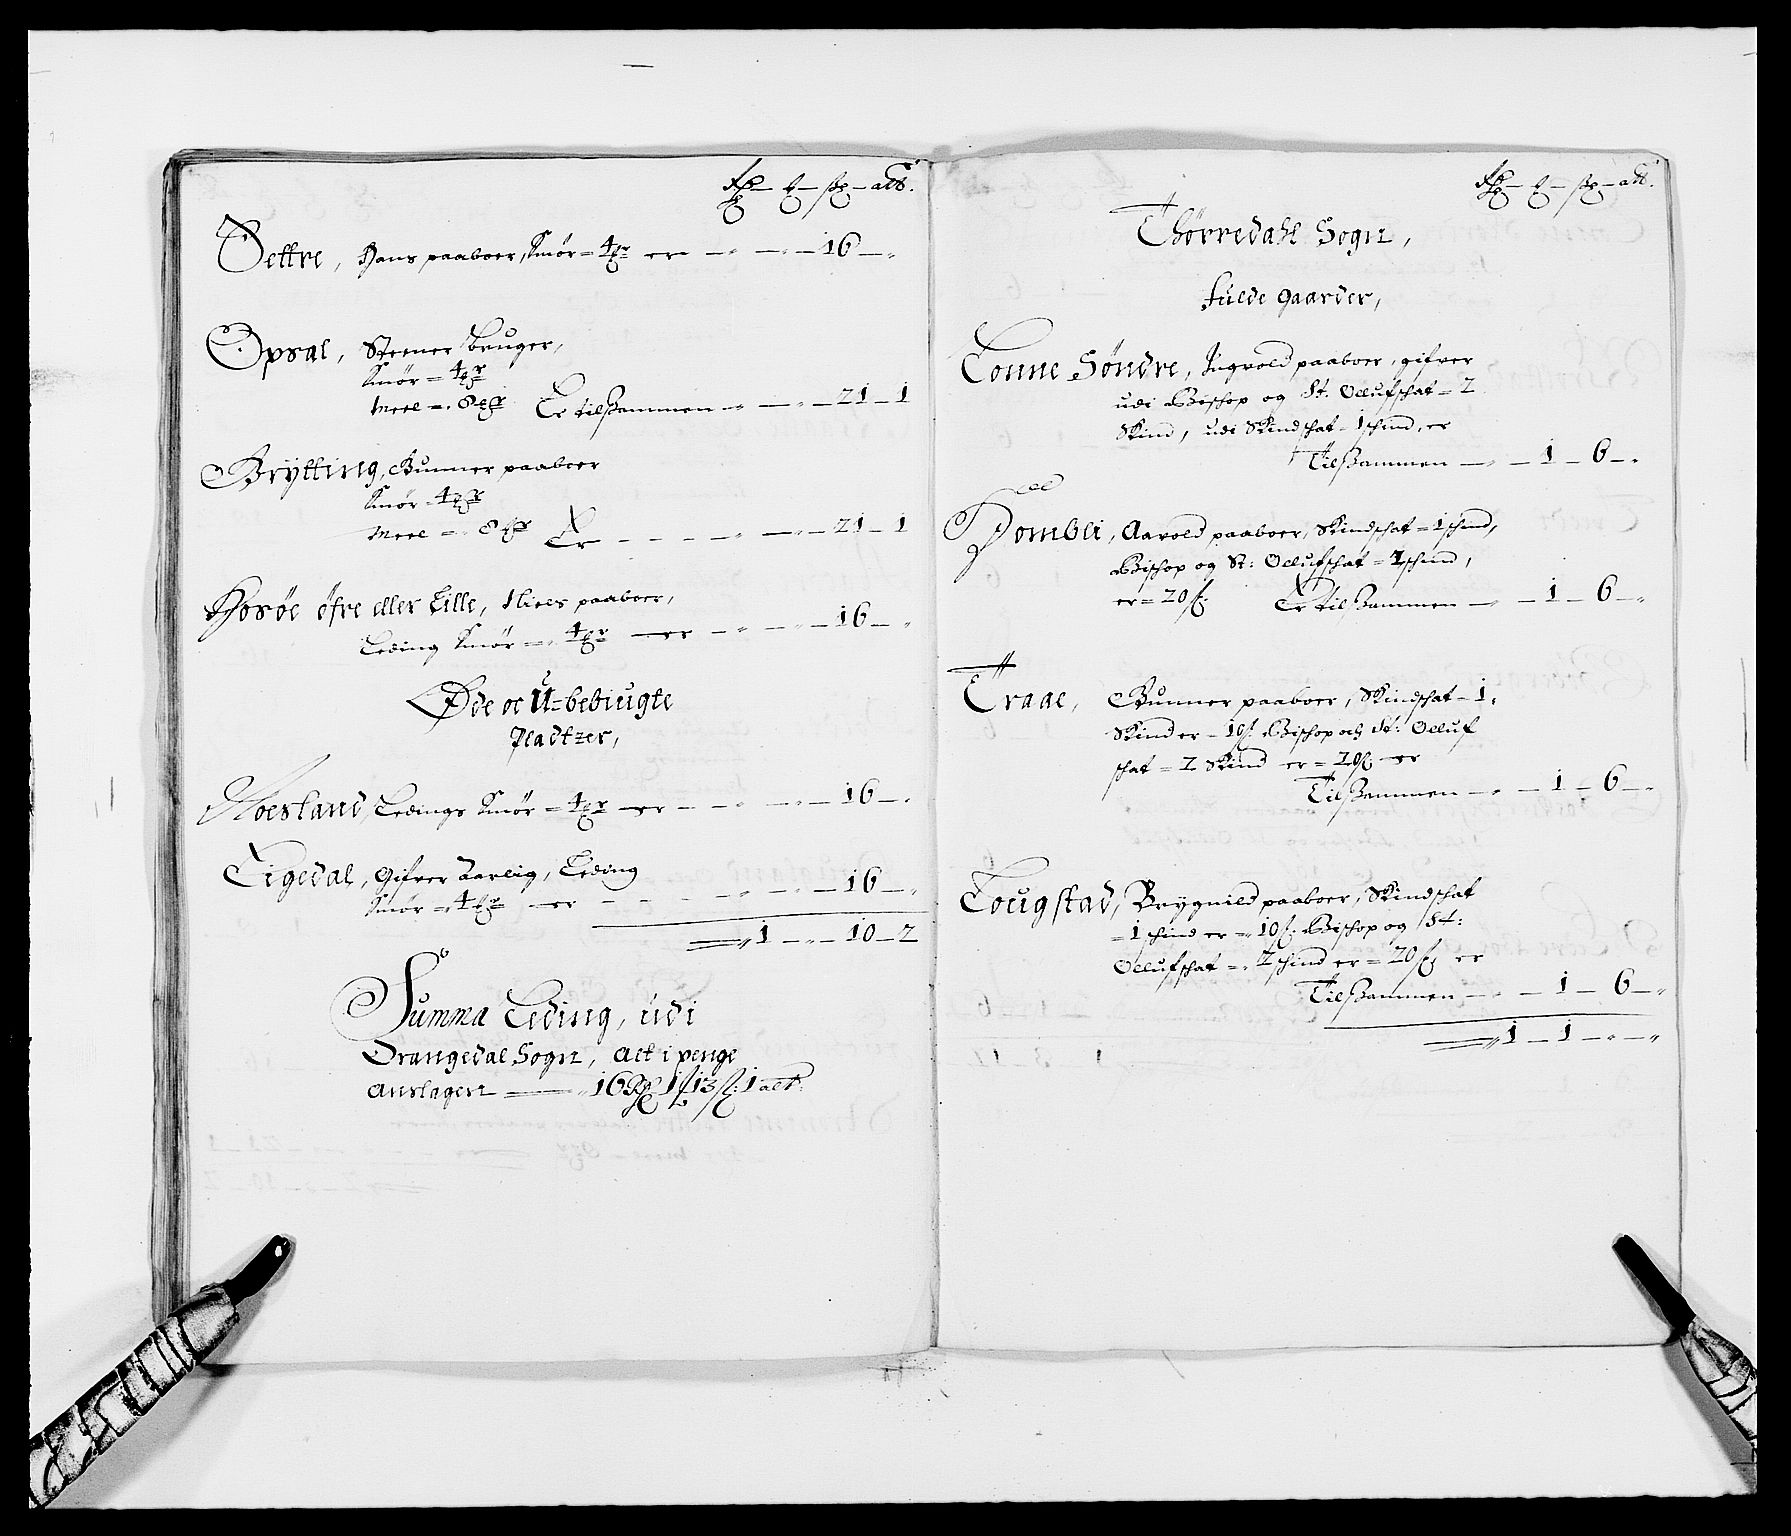 Rdr — ℔ — ſk — alb.
Settre, Hans paaboer, Smör = 4 mr er — „ — „ — 16 — „
Opsal, Steener bruger,
Smör = 4 mr
Meel = 8 mr Er tilsammen „ — „ — 21 — 1
Brytting, Gunner paaboer
Smör 4 mr
Meel = 8 mr Er — — — „ — „ — 21 — 1
Hosöe öfre eller Lille, Niels paaboer,
Leding Smör = 4 mr — er — „ — „ — 16 — „
Øde oc U-bebiugte
Pladtzer,
Moesland, Ledings Smör = 4 mr — er — „ — „ — 16 — „
Tigedal, Gifver Aarlig, Leding
Smör = 4 mr — er — — — „ — „ — 16 — „
1 — „ — 10 — 2
Summa Leding, udi
Drangedal Sogn, Alt i penge
Anslagen — 16 Rdr 1 ℔ 13 ſk: 1 alb.
Rdr — ℔ — ſk — alb.
Thörredahl Sogn,
fulde gaarder,
Tonne Söndre, Jngvold paaboer, gifver
udi Bischop og St. Ollufschat = 2
Skind, udi Skindschat = 1 schind, er
Tilsammen — „ — 1 — 6 — „
Dombli, Aavold paaboer, Skindschat = 1 schind,
Bischop og St: Ollufschat = 2 schind,
er = 20 ſ: Er tilsammen — „ — 1 — 6 — „
Traae, Gunner paaboer, Skindschat — 1,
Skind er — 10 ſ: Bischop och St: Olluf
schat = 2 Skind er = 20 ſ — er
Tilsammen — „ — 1 — 6 — „
Tougstad, Brygnild paaboer, Skindschat
= 1 schind er = 10 ſ: Bischop og St:
Ollufschat = 2 schind er = 20 ſ er
Tilsammen — „ — 1 — 6 — „
1 — 1 — „ — „